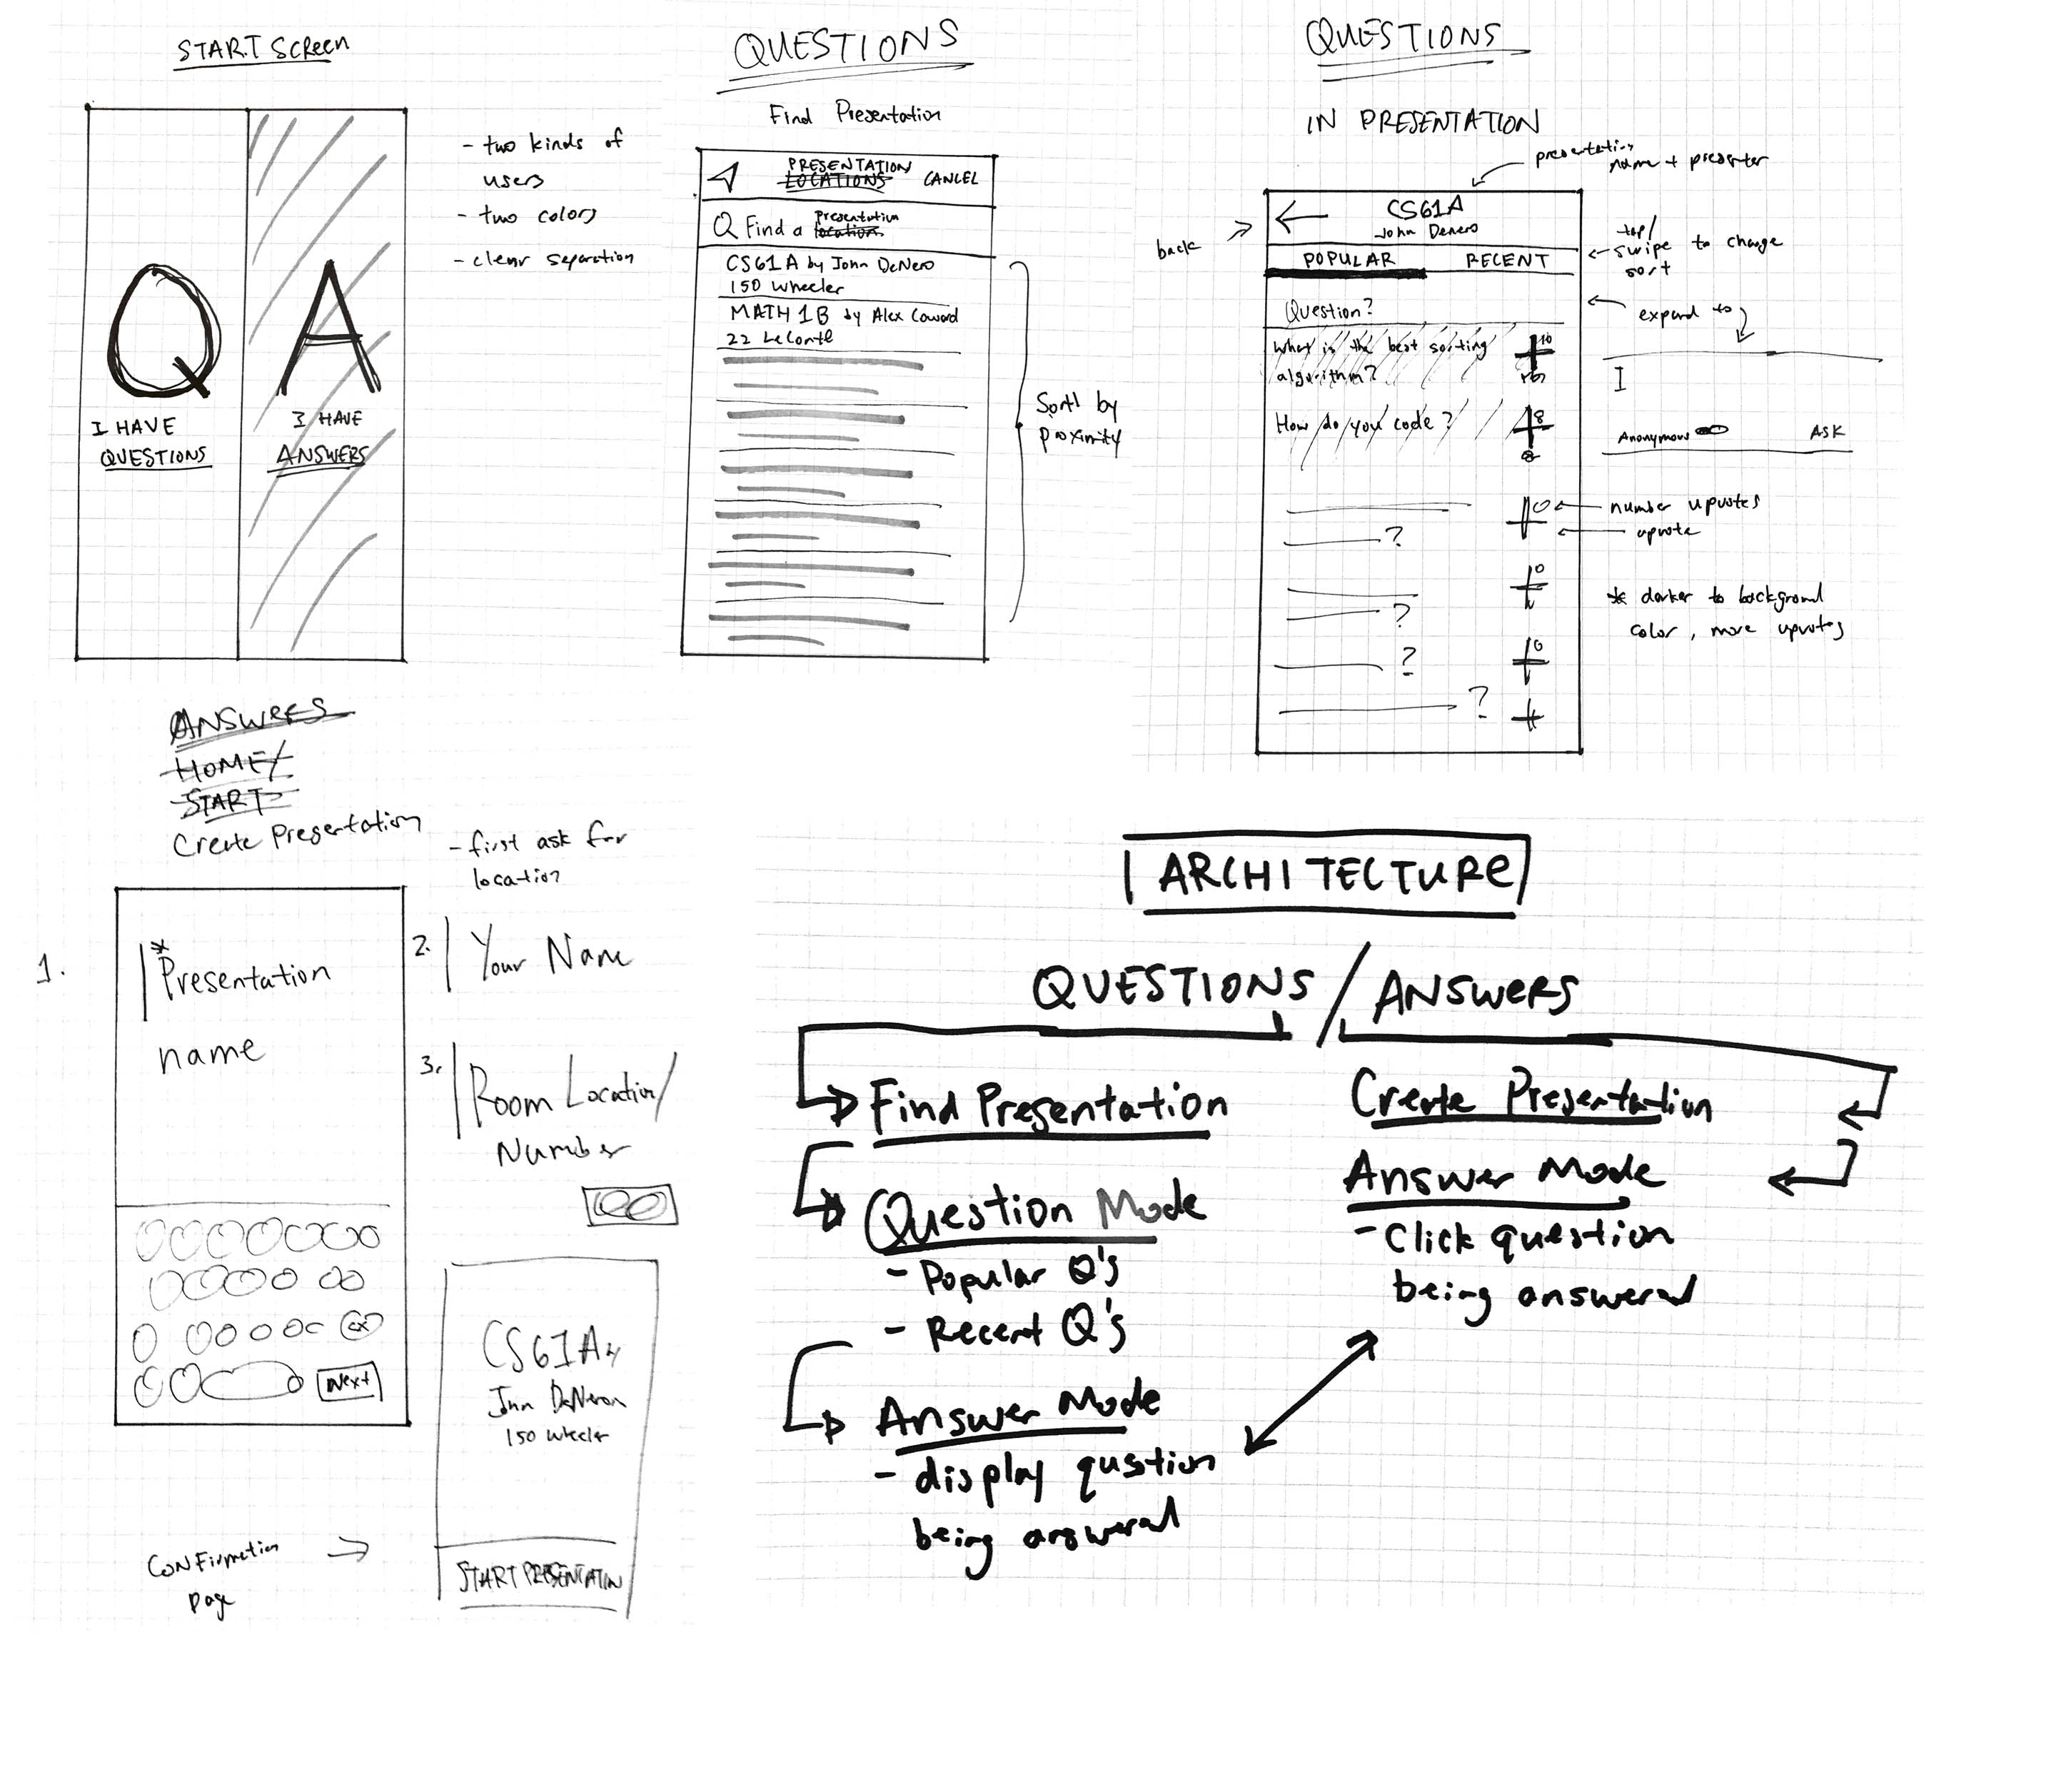 START SCREEN
Q
I HAVE
QUESTIONS
A
I HAVE
ANSWERS
- two kinds of
users
- two colors
- clear separation
QUESTIONS
Find Presentation
PRESENTATION
LOCATIONS
CANCEL
Q Find a presentation
location
CS61A by John DeNero
150 Wheeler
MATH 1B by Alex Coward
22 LeConte
Sort by
proximity
QUESTIONS
IN PRESENTATION
presentation
name + presenter
back
CS61A
John Denero
POPULAR
RECENT
tap/
swipe to change
sort
Question?
expand to
What is the best sorting
algorithm?
10
How do you code?
8
I
Anonymous
ASK
?
0
number upvotes
upvote
?
0
?
0
?
* darker to background
color, more upvotes
ANSWERS
HOME/
START
Create Presentation
- first ask for
location
1.
*Presentation
name
Next
2. Your Name
3. Room Location/
Number
CS61A
John DeNeron
150 wheeler
START PRESENTATIN
CONFirmation
page
ARCHITECTURE
QUESTIONS / ANSWERS
Find Presentation
Question Mode
- Popular Q's
- Recent Q's
Answer Mode
- display qustion
being answered
Create Presentation
Answer Mode
- Click question
being answered